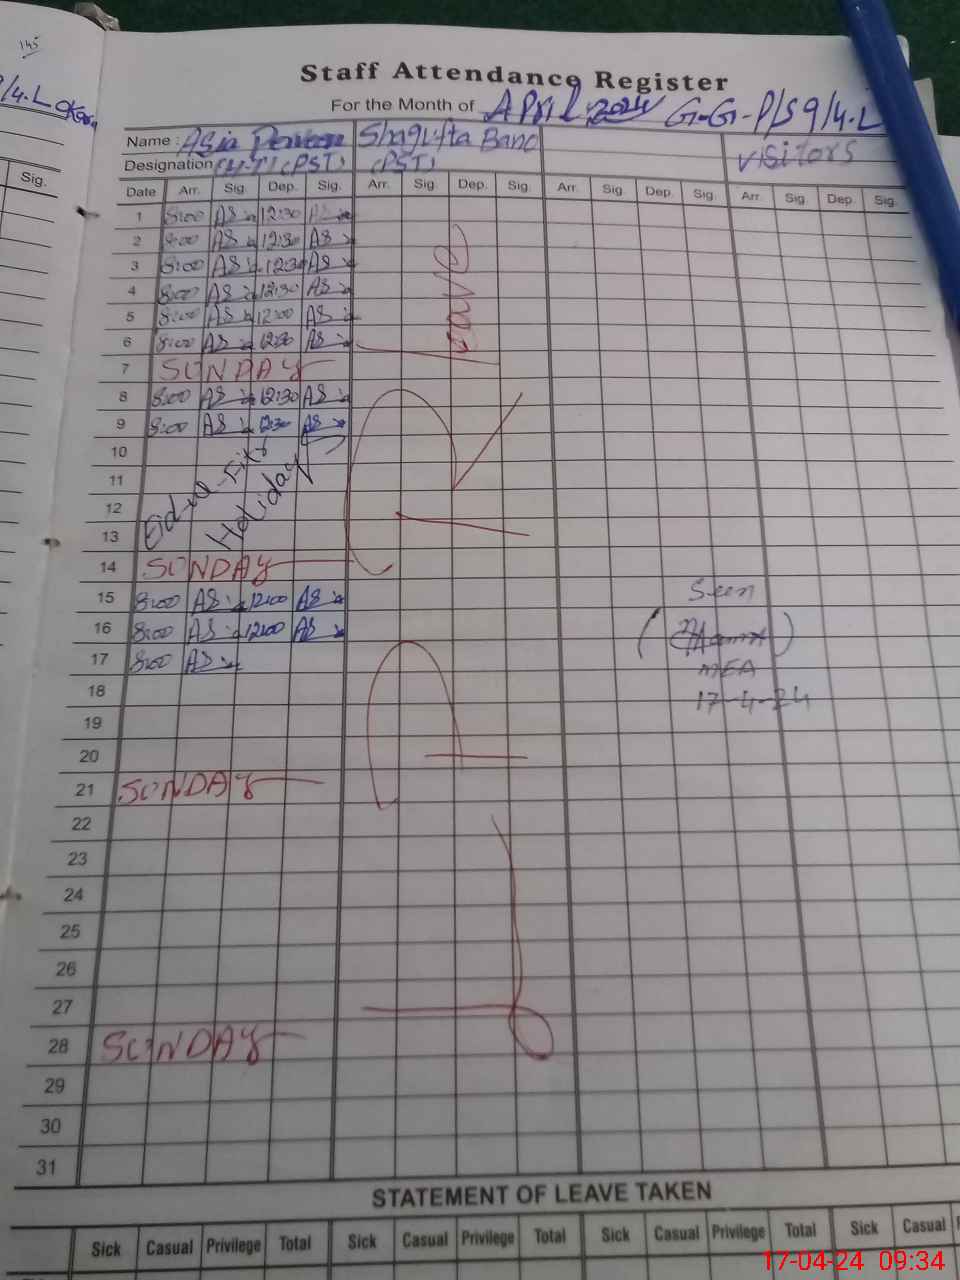 145
Staff Attendance Register
For the Month of April 2024 G-G-P/S 9/4.L
Name : Asia Perveen Shagufta Bano
Designation (H.T) (PST) (PST) visitors
Sig. Date Arr. Sig. Dep. Sig. Arr. Sig. Dep. Sig. Arr. Sig. Dep. Sig. Arr. Sig. Dep. Sig.
1 8:00 AS 12:30 AS
2 8:00 AS 12:30 AS
3 8:00 AS 12:30 AS
4 8:00 AS 12:30 AS
5 8:00 AS 12:00 AS
6 8:00 AS 12:30 AS
Leave
7 SUNDAY
8 8:00 AS 12:30 AS
9 8:00 AS 12:30 AS
10
11
12
13
Eid-ul-Fitr
Holiday
14 SUNDAY
15 8:00 AS 12:00 AS
16 8:00 AS 12:00 AS
17 8:00 AS
Seen
MEA
17-4-24
18
19
20
21 SUNDAY
22
23
24
25
26
27
28 SUNDAY
29
30
31
STATEMENT OF LEAVE TAKEN
Sick Casual Privilege Total Sick Casual Privilege Total Sick Casual
17-04-24 09:34